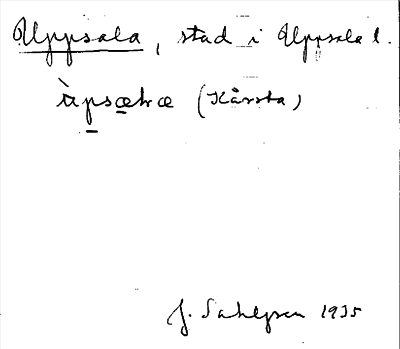 Uppsala, stad i Uppsala l.
(Kårsta)
J. Sahlgren 1935